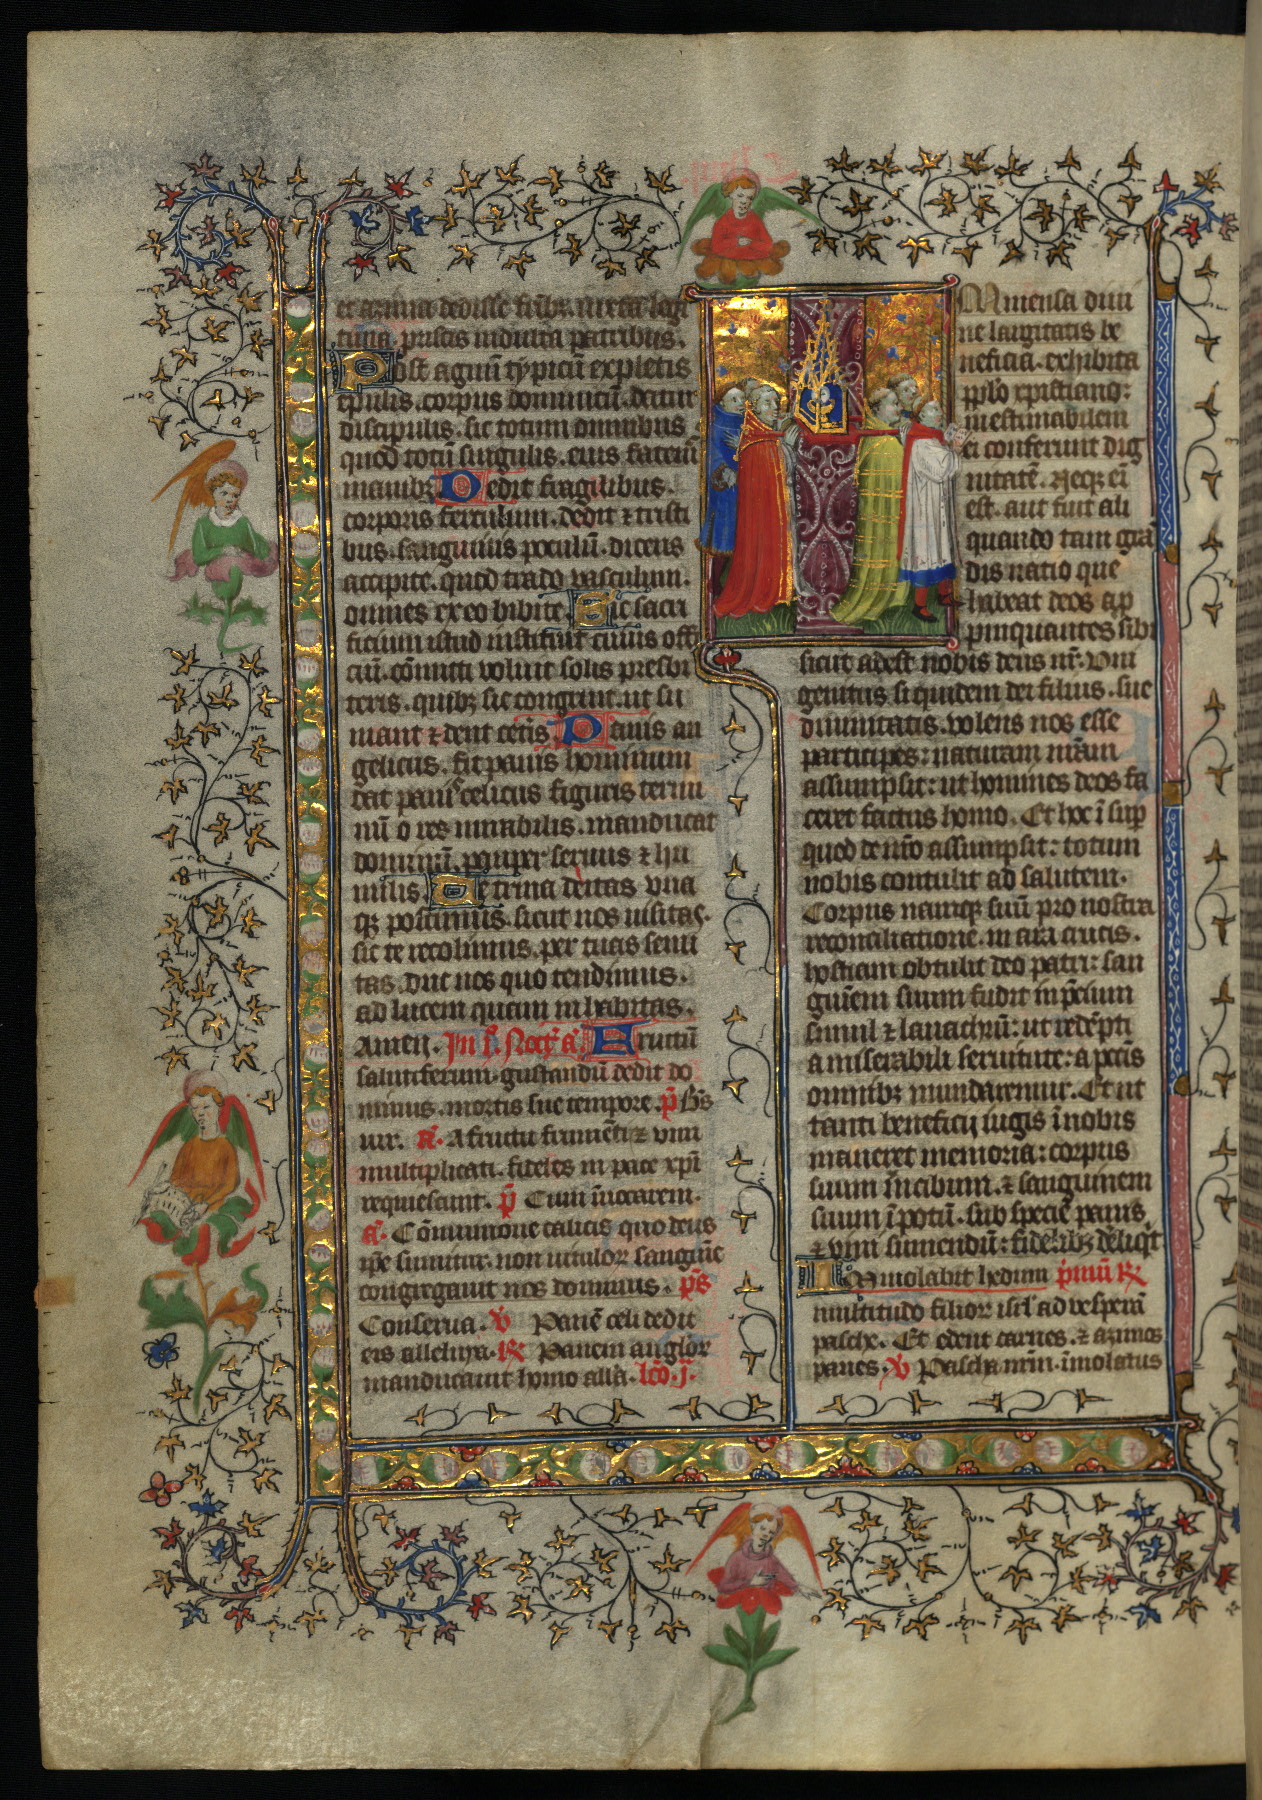 et azima dedisse frībꝫ iuxta legi
tima priscis indulta patribus.
Post agnū typicū expletis
epulis. corpus dominicū. datum
discipulis. sic totum omnibus
quod totū singulis. eius fatemᷣ
manibꝫ Dedit fragilibus.
corporis ferculum. dedit ⁊ tristi
bus. sanguinis poculū. dicens
accipite. quod trado vasculum.
omnes ex eo bibite. Sic sacri
ficium istud instituit cuius offi
ciū. cōmitti voluit solis presbi
teris. quibꝫ sic congruit. ut su
mant ⁊ dent cet̄is Panis an
gelicus. fit panis hominum
dat panis celicus figuris termi
nū o res mirabilis. manducat
dominū. pauper seruus ⁊ hu
milis. Te trina deitas vna
qꝫ poscimus. sicut nos uisitas.
sic te recolimus. per tuas semi
tas. duc nos quo tendimus.
ad lucem quam inhabitas.
Amen. In j. Noct̄ a̅. Fructū
salutiferum. gustandū dedit do
minus. mortis sue tempore. p̄s Bt̄s
uir. a̅. A fructu frumēti ⁊ vini
multiplicati. fideles in pace xp̄i
requiescunt. p̄s Cum īuocarem.
a̅. Cōmunione calicis quo deus
ip̄e sumitur. non uitulorꝝ sanguīe
congregauit nos dominus. p̄s
Conserua. ℣ Panē celi dedit
eis alleluya. ℟ Panem angl̄orꝝ
manducauit homo allā. lc̄o. j.
Immensa diui
ne largitatis be
neficia. exhibita
pp̄lo xpistiano:
inestimabilem
ei conferunt dig
nitatē. Neqꝫ ei̅
est. aut fuit ali
quando tam grā
dis natio que
habeat deos ap
pinquantes sibi
sicut adest nobis deus nr̄. Vni
genitus siquidem dei filius. sue
diuinitatis. volens nos esse
participes: naturam nr̄am
assumpsit: ut homines deos fa
ceret factus homo. Et hoc ī sup̄
quod de nr̄o assumpsit: totum
nobis contulit ad salutem.
Corpus namqꝫ suū pro nostra
reconciliatione. in ara crucis.
hostiam obtulit deo patri: san
guīem suum fudit in p̄cium
simul ⁊ lauachrū: ut redēpti
a miserabili seruitute: a pccīs
omnibꝫ mundaremur. Et ut
tanti beneficij iugis ī nobis
maneret memoria: corpus
suum īn cibum. ⁊ sanguinem
suum ī potū. sub specie panis
⁊ vini sumendū: fidelibꝫ dēliqͥt
Immolabit hedum p̄mū ℟
multitudo filiorꝝ isrl̄ ad vesperā
pasche. Et edent carnes. ⁊ azimos
panes. ℣ Pascha nr̄m. īmolatus